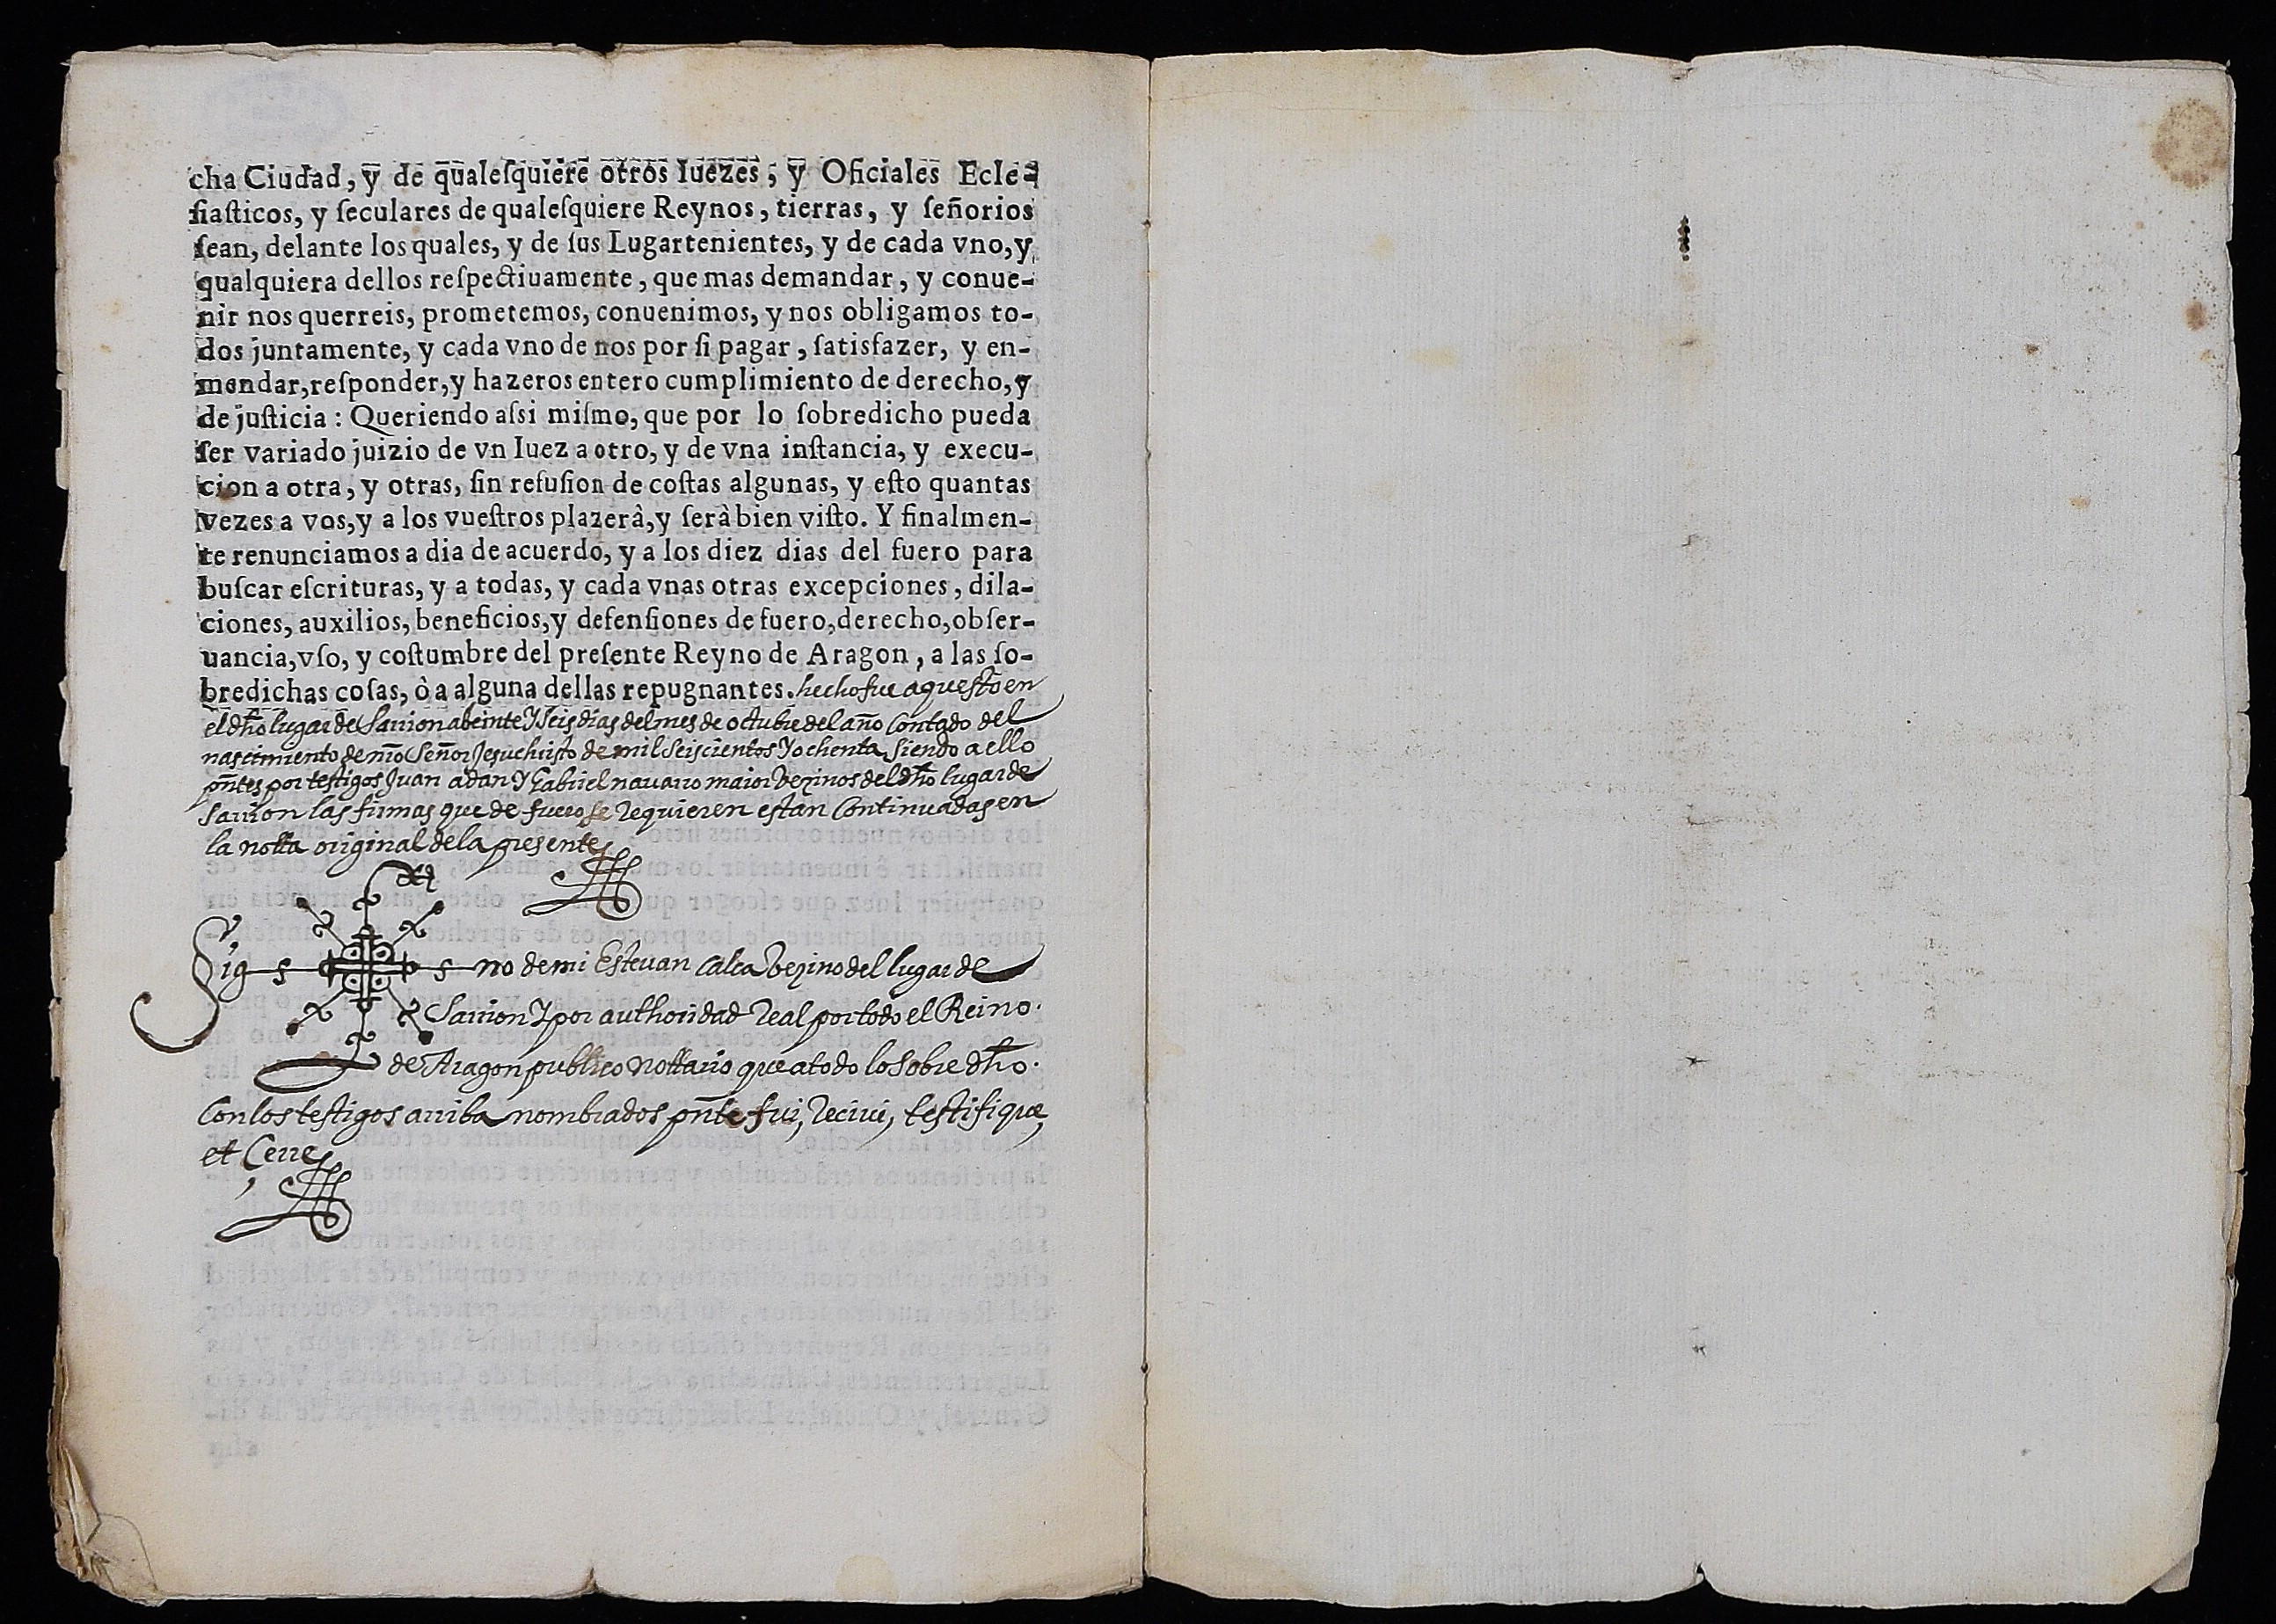 cha Ciudad, y de qualeſquiere otros Iuezes, y Oficiales Ecle-
ſiaſticos, y ſeculares de qualeſquiere Reynos, tierras, y ſeñorios
ſean, delante los quales, y de ſus Lugartenientes, y de cada vno, y
qualquiera dellos reſpectiuamente, que mas demandar, y conue-
nir nos querreis, prometemos, conuenimos, y nos obligamos to-
dos juntamente, y cada vno de nos por ſi pagar, ſatisfazer, y en-
mendar, reſponder, y hazeros entero cumplimiento de derecho, y
de juſticia: Queriendo aſsi miſmo, que por lo ſobredicho pueda
ſer variado juizio de vn Iuez a otro, y de vna inſtancia, y execu-
cion a otra, y otras, ſin refuſion de coſtas algunas, y eſto quantas
vezes a vos, y a los vueſtros plazerà, y ſerà bien viſto. Y finalmen-
te renunciamos a dia de acuerdo, y a los diez dias del fuero para
buſcar eſcrituras, y a todas, y cada vnas otras excepciones, dila-
ciones, auxilios, beneficios, y defenſiones de fuero, derecho, obſer-
uancia, vſo, y coſtumbre del preſente Reyno de Aragon, a las ſo-
bredichas coſas, ò a alguna dellas repugnantes. hecho fue aquesto en
el dho lugar de Sarrion a beinte Y Seis dias del mes de octubre del año Contado del
nascimiento de nro Señor Jesuchristo de mil Seiscientos Y ochenta siendo a ello
pntes por testigos Juan adan Y Gabriel nauarro maior Vezinos del dho lugar de
Sarrion las firmas que de fuero se requieren estan Continuadas en
la notta original de la presente
Sig s s no de mi Esteuan Calca Vezino del lugar de
Sarrion Y por authoridad Real por todo el Reino.
de Aragon publico nottario que a todo lo Sobre dho.
Con los testigos arriba nombrados pnte fui, Reciui, testifique,
et Cerre